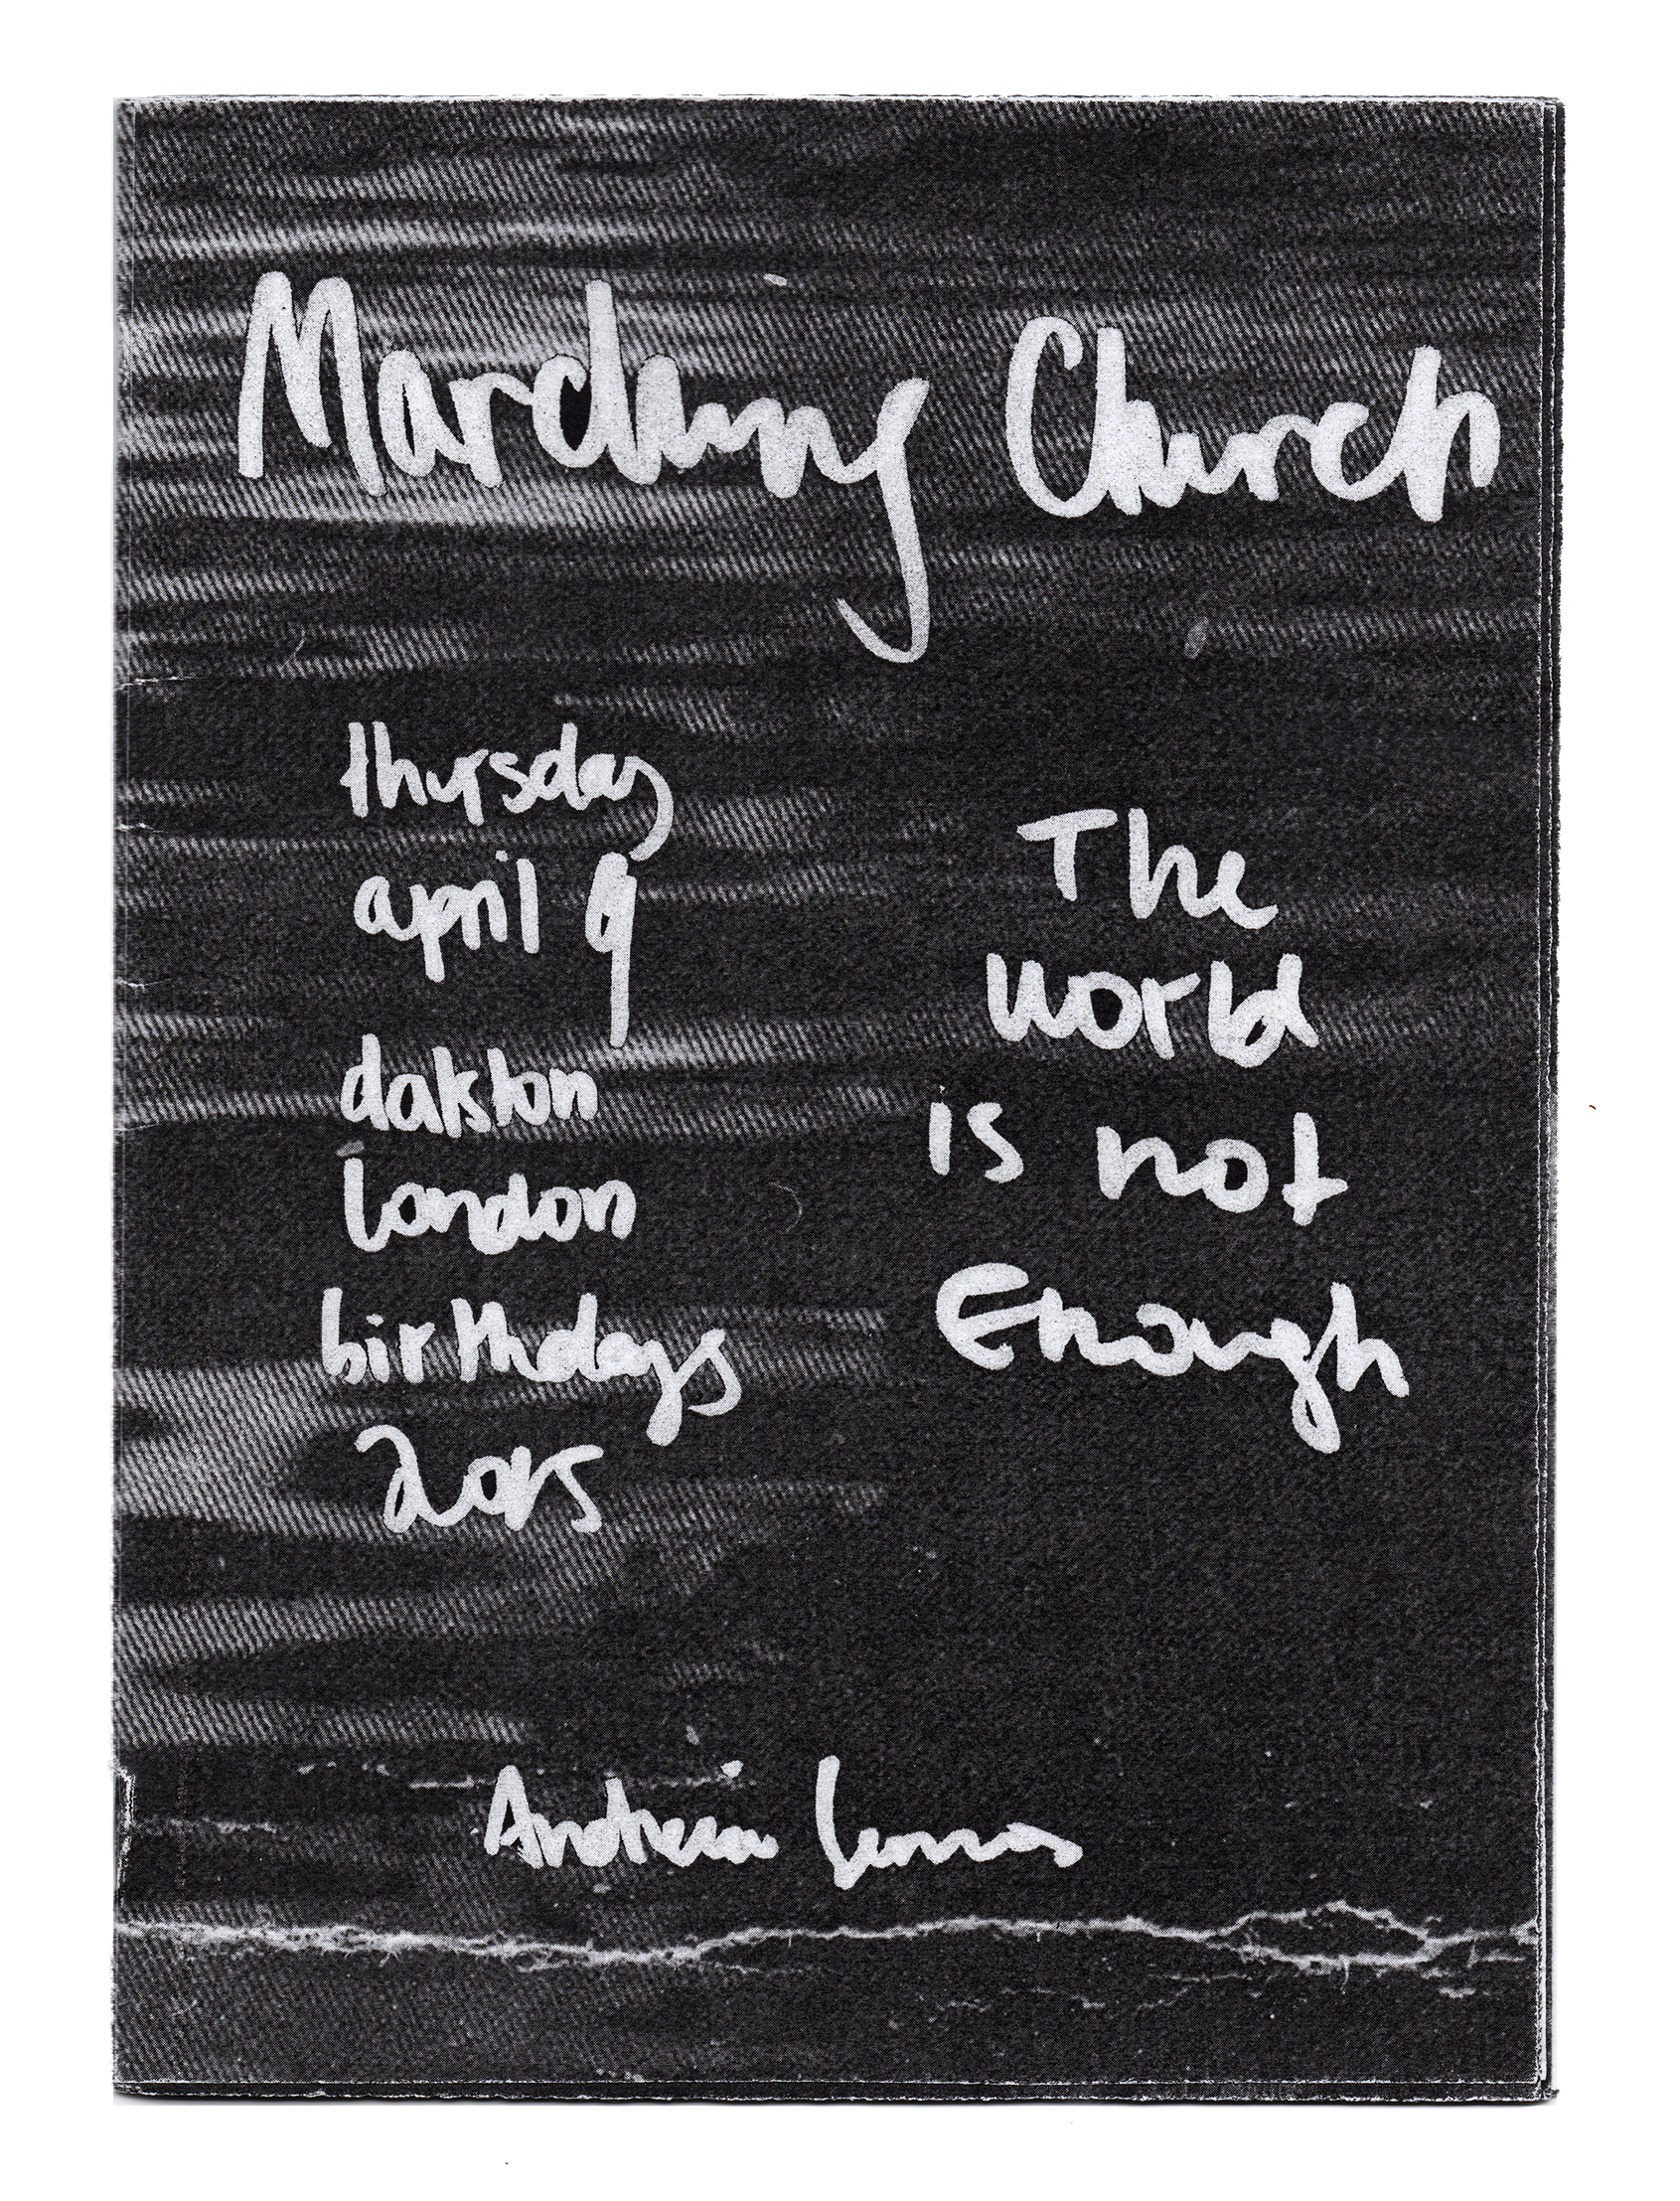 Marching Church
thursday
april 9
dalston
london
birthdays
2015
The
World
is not
Enough